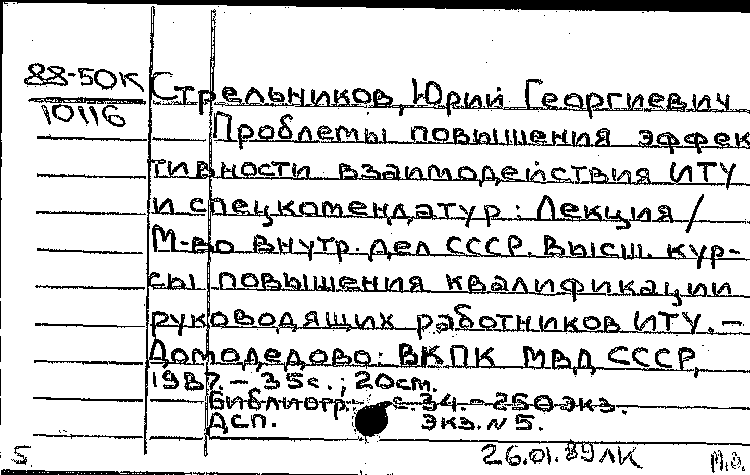 88-50К
10116
Стрельников, Юрий Георгиевич
Проблемы повышения эффек
тивности взаимодействия ИТУ
и спецкомендатур: Лекция /
М-во внутр. дел СССР. Высш. кур-
сы повышения квалификации
руководящих работников ИТУ. –
Домодедово: ВКПК МВД СССР,
1987. – 35 с.; 20 cm.
Библиогр.: с. 34. – 250 экз.
ДСП. экз. N 5.
5 26.01.89 ЛК